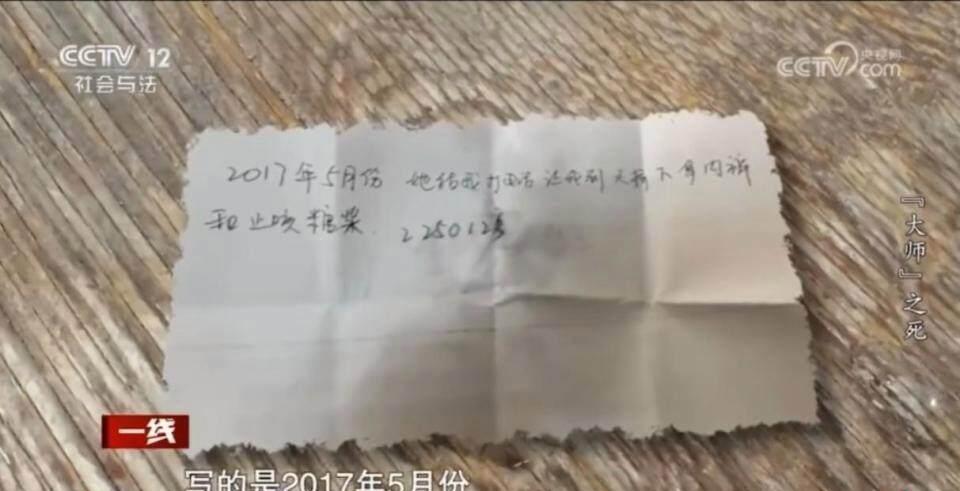 CCTV 12
社会与法
央视网
CCTV.com
2017年5月份 她给我打电话让我到天桥下拿内裤
和止咳糖浆. 225012
『大师』之死
一线
写的是2017年5月份